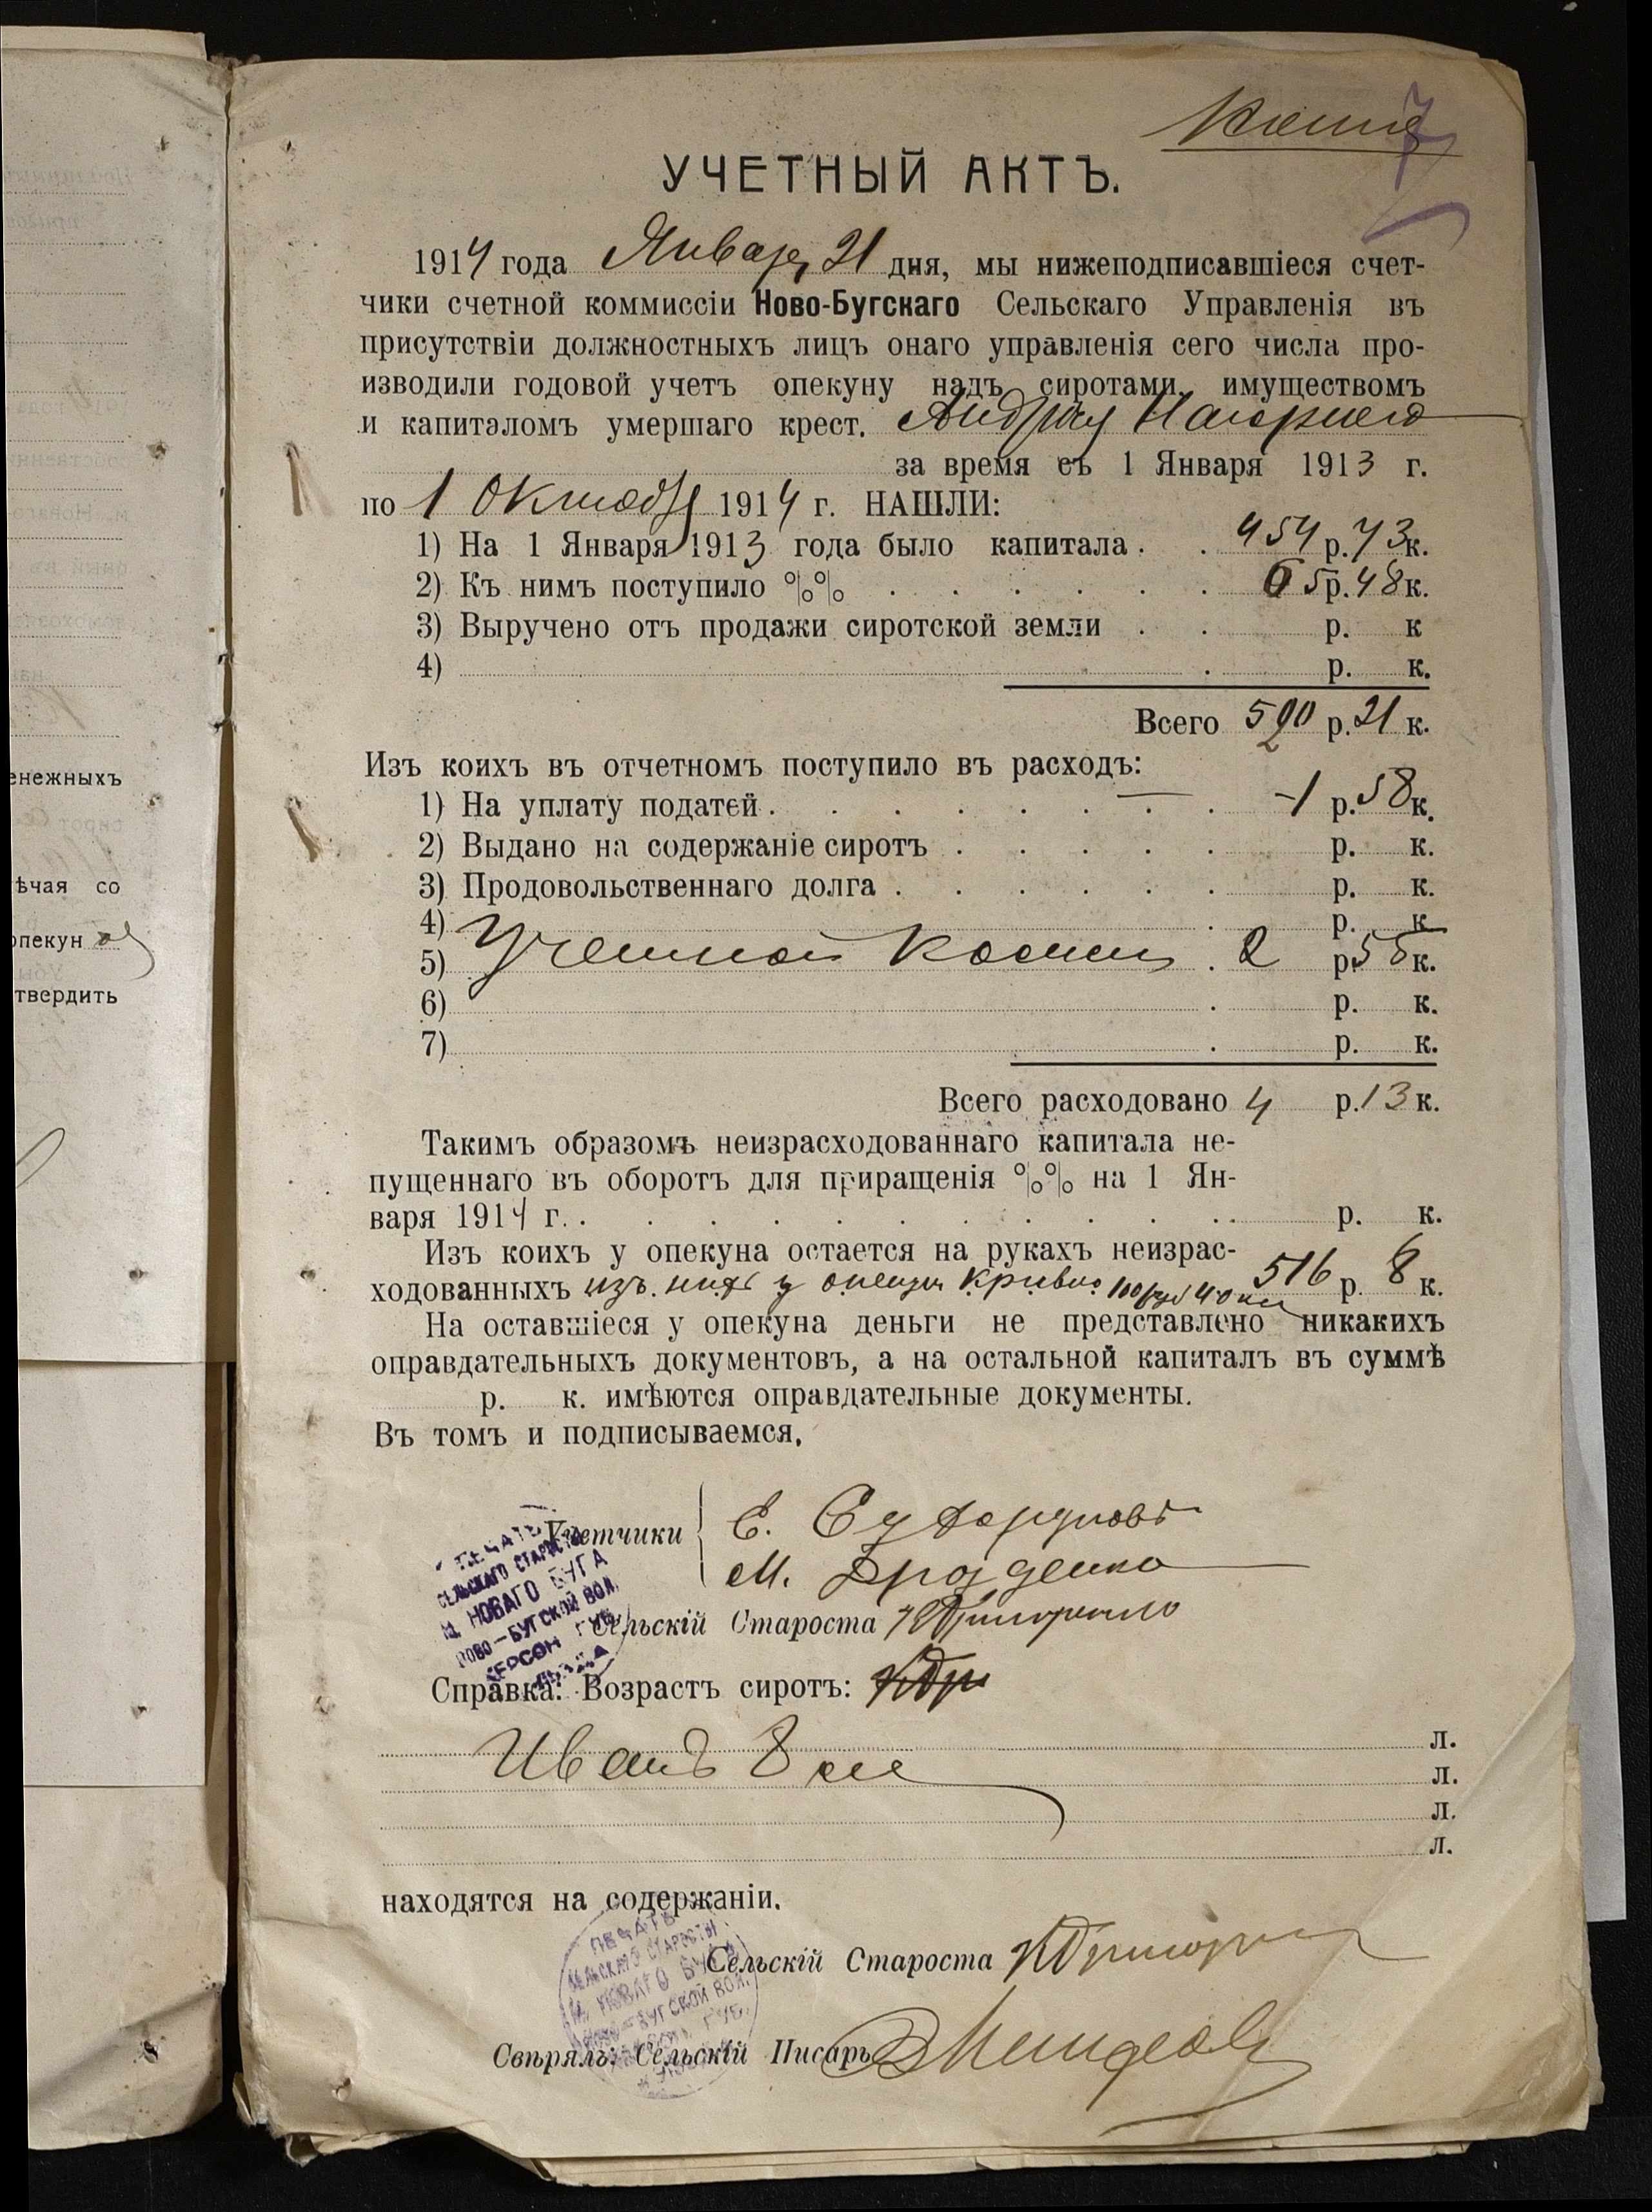 Копия
7
УЧЕТНЫЙ АКТЪ.
1914 года Января 21 дня, мы нижеподписавшіеся счет-
чики счетной коммиссіи Ново-Бугскаго Сельскаго Управленія въ
присутствіи должностныхъ лицъ онаго управленія сего числа про-
изводили годовой учетъ опекуну надъ сиротами, имуществомъ
и капиталомъ умершаго крест. Андрея Нагорнего
за время съ 1 Января 1913 г.
по 1 Октября 1914 г. НАШЛИ:
1) На 1 Января 1913 года было капитала . . 454 р. 73 к.
2) Къ нимъ поступило %% . . . . . . 65 р. 48 к.
3) Выручено отъ продажи сиротской земли . . р. к
4) . р. к.
Всего 520 р. 21 к.
Изъ коихъ въ отчетномъ поступило въ расходъ:
1) На уплату податей . . . . . . . . 1 р. 58 к.
2) Выдано на содержаніе сиротъ . . . . . р. к.
3) Продовольственнаго долга . . . . . . р. к.
4) . р. к
5) Учетной . 2 р. 55 к.
6) . р. к.
7) . р. к.
Всего расходовано 4 р. 13 к.
Такимъ образомъ неизрасходованнаго капитала не-
пущеннаго въ оборотъ для приращенія %% на 1 Ян-
варя 1914 г. . . . . . . . . . . . . р. к.
Изъ коихъ у опекуна остается на рукахъ неизрас-
ходованныхъ изъ нихъ у опекуна 100 руб 40 коп 516 р. 8 к.
На оставшіеся у опекуна деньги не представлено никакихъ
оправдательныхъ документовъ, а на остальной капиталъ въ суммѣ
р. к. имѣются оправдательные документы.
Въ томъ и подписываемся.
Учетчики Е.
М.
Сельскій Староста
Справка: Возрастъ сиротъ:
л.
Иванъ 8 л.
л.
л.
находятся на содержаніи.
Сельскій Староста
Свѣрялъ: Сельскій Писарь
ПЕЧАТЬ
СЕЛЬСКАГО СТАРОСТЫ
М. НОВАГО БУГА
НОВО-БУГСКОЙ ВОЛ.
ХЕРСОН. ГУБ.
ПЕЧАТЬ
СЕЛЬСКАГО СТАРОСТЫ
М. НОВАГО БУГА
НОВО-БУГСКОЙ ВОЛ.
ГУБ.
енежныхъ
ѣчая со
опекун
твердить